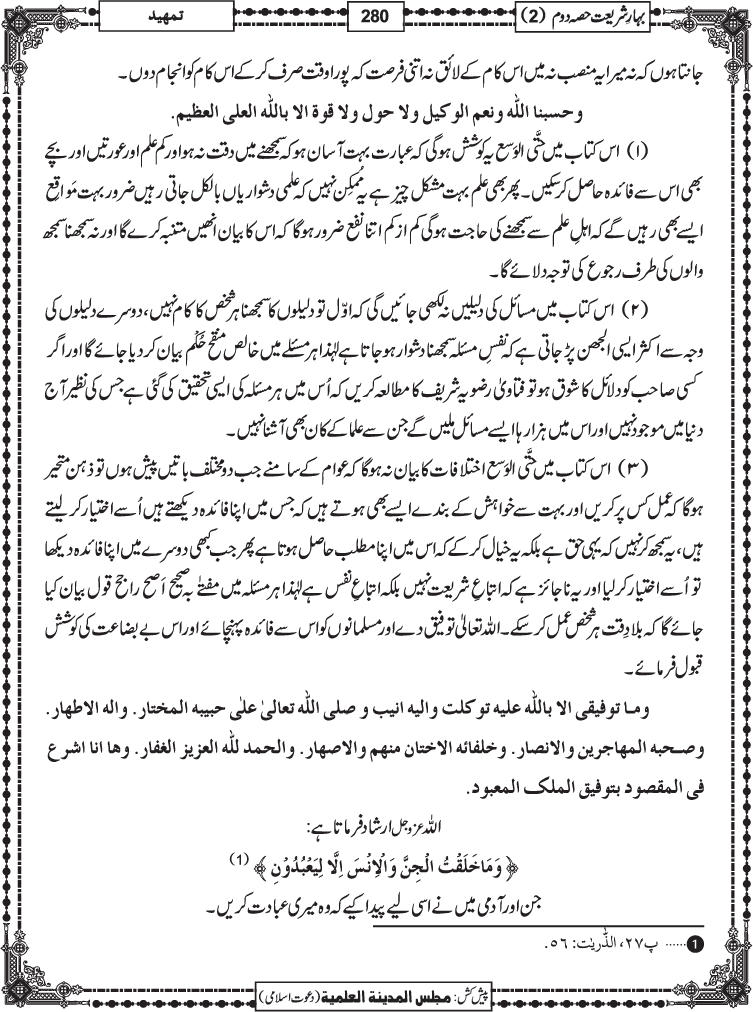 بہارِ شریعت حصہ دوم (2)
280
تمہید
جانتا ہوں کہ نہ میرا یہ منصب نہ میں اس کام کے لائق نہ اتنی فرصت کہ پورا وقت صرف کر کے اس کام کو انجام دوں۔
وحسبنا اللّٰہ ونعم الوکیل ولا حول ولا قوۃ الا باللّٰہ العلی العظیم.
(۱) اس کتاب میں حتَّی الوَسع یہ کوشش ہوگی کہ عبارت بہت آسان ہو کہ سمجھنے میں دقت نہ ہو اور کم علم اور عورتیں اور بچے
بھی اس سے فائدہ حاصل کر سکیں۔ پھر بھی علم بہت مشکل چیز ہے یہ مُمکِن نہیں کہ علمی دشواریاں بالکل جاتی رہیں ضرور بہت مَواقِع
ایسے بھی رہیں گے کہ اہلِ علم سے سمجھنے کی حاجت ہوگی کم از کم اتنا نفع ضرور ہوگا کہ اس کا بیان انھیں متنبہ کرے گا اور نہ سمجھنا سمجھ
والوں کی طرف رجوع کی توجہ دلائے گا۔
(۲) اس کتاب میں مسائل کی دلیلیں نہ لکھی جائیں گی کہ اوّل تو دلیلوں کا سمجھنا ہر شخص کا کام نہیں، دوسرے دلیلوں کی
وجہ سے اکثر ایسی الجھن پڑ جاتی ہے کہ نفسِ مسئلہ سمجھنا دشوار ہو جاتا ہے لہٰذا ہر مسئلے میں خالص منقح حُکْم بیان کر دیا جائے گا اور اگر
کسی صاحب کو دلائل کا شوق ہو تو فتاویٰ رضویہ شریف کا مطالعہ کریں کہ اُس میں ہر مسئلہ کی ایسی تحقیق کی گئی ہے جس کی نظیر آج
دنیا میں موجود نہیں اور اس میں ہزار ہا ایسے مسائل ملیں گے جن سے علما کے کان بھی آشنا نہیں۔
(۳) اس کتاب میں حتَّی الوَسع اختلافات کا بیان نہ ہوگا کہ عوام کے سامنے جب دو مختلف باتیں پیش ہوں تو ذہن متحیر
ہوگا کہ عمل کس پر کریں اور بہت سے خواہش کے بندے ایسے بھی ہوتے ہیں کہ جس میں اپنا فائدہ دیکھتے ہیں اُسے اختیار کر لیتے
ہیں، یہ سمجھ کر نہیں کہ یہی حق ہے بلکہ یہ خیال کر کے کہ اس میں اپنا مطلب حاصل ہوتا ہے پھر جب کبھی دوسرے میں اپنا فائدہ دیکھا
تو اُسے اختیار کر لیا اور یہ ناجائز ہے کہ اتباعِ شریعت نہیں بلکہ اتباعِ نفس ہے لہٰذا ہر مسئلہ میں مفتٰے بہ صحیح اَصَح راجح قول بیان کیا
جائے گا کہ بلا دِقت ہر شخص عمل کر سکے۔ اللہ تعالیٰ توفیق دے اور مسلمانوں کو اس سے فائدہ پہنچائے اور اس بے بضاعت کی کوشش
قبول فرمائے۔
وما توفیقی الا باللّٰہ علیہ توکلت والیہ انیب و صلی اللّٰہ تعالیٰ علٰی حبیبہ المختار. والہ الاطھار.
وصحبہ المھاجرین والانصار. وخلفائہ الاختان منھم والاصھار. والحمد للّٰہ العزیز الغفار. وھا انا اشرع
فی المقصود بتوفیق الملک المعبود.
اللہ عزوجل ارشاد فرماتا ہے:
﴿ وَمَا خَلَقْتُ الْجِنَّ وَالْاِنْسَ اِلَّا لِیَعْبُدُوْنِ ﴾ (1)
جن اور آدمی میں نے اسی لیے پیدا کیے کہ وہ میری عبادت کریں۔
1 ...... پ۲۷، الذّٰریٰت: ۵۶.
پیش کش: مجلس المدینة العلمیة (دعوت اسلامی)